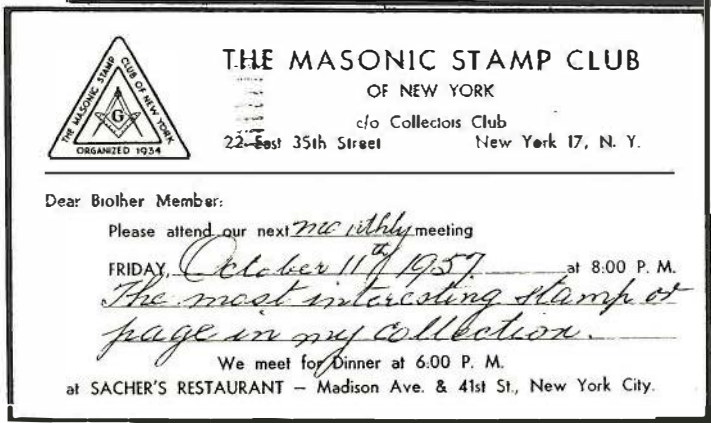 THE MASONIC STAMP CLUB OF NEW YORK
G
ORGANIZED 1934
THE MASONIC STAMP CLUB
OF NEW YORK
c/o Collectors Club
22 East 35th Street New York 17, N. Y.
Dear Brother Member:
Please attend our next monthly meeting
FRIDAY, October 11th 1957 at 8:00 P. M.
The most interesting stamp or
page in my collection.
We meet for Dinner at 6:00 P. M.
at SACHER'S RESTAURANT – Madison Ave. & 41st St., New York City.